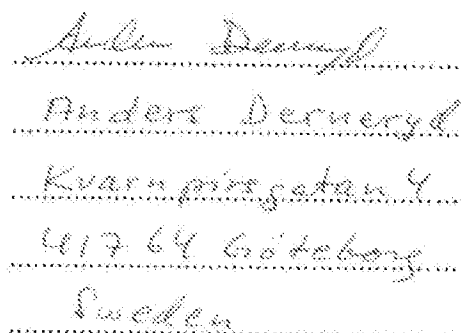 Anders Derneryd
Anders Derneryd
Kvarnpirsgatan 4
417 64 Göteborg
Sweden